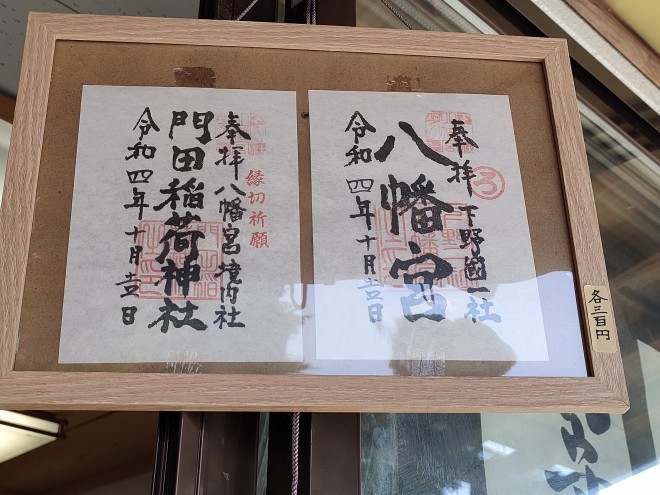 奉拝 下野國一社
ろ
八幡宮
令和四年十月吉日
縁切祈願
奉拝 八幡宮境内社
門田稲荷神社
令和四年十月吉日
各三百円